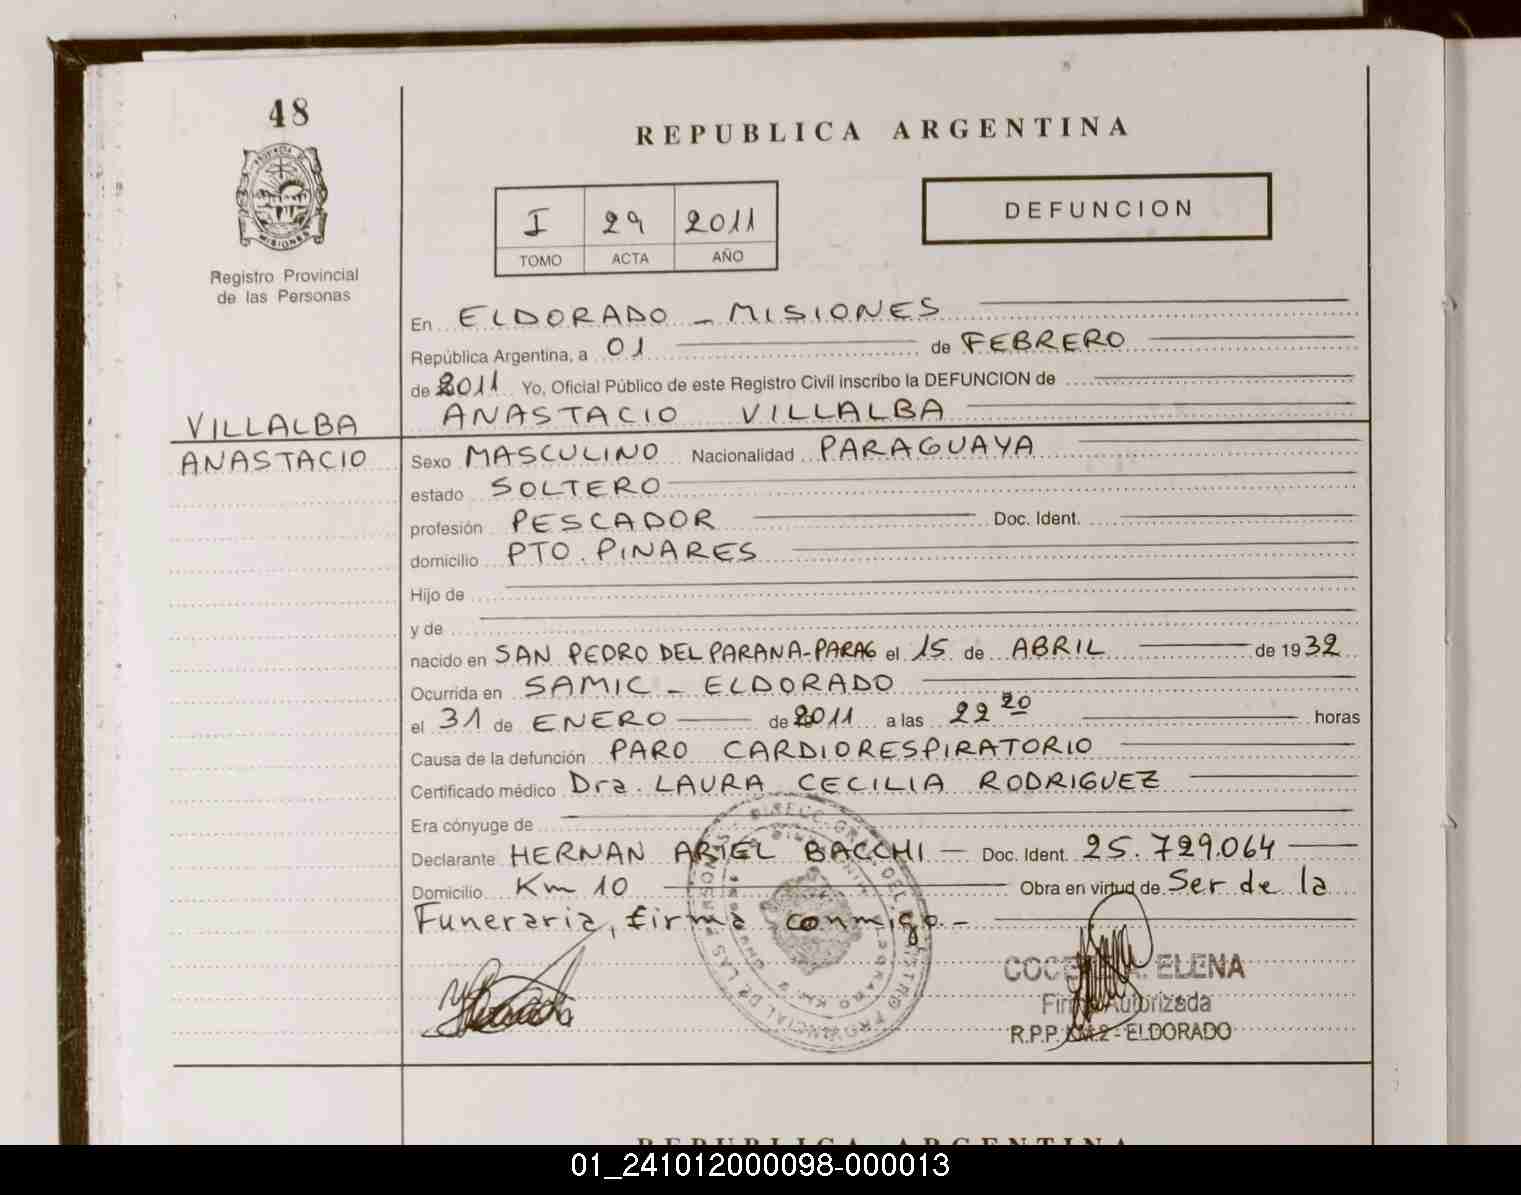 48
PROVINCIA DE
MISIONES
Registro Provincial
de las Personas
REPUBLICA ARGENTINA
I 29 2011
TOMO ACTA AÑO
DEFUNCION
En ELDORADO - MISIONES
República Argentina, a 01 de FEBRERO
de 2011 Yo, Oficial Público de este Registro Civil inscribo la DEFUNCION de
ANASTACIO VILLALBA
VILLALBA
ANASTACIO
Sexo MASCULINO Nacionalidad PARAGUAYA
estado SOLTERO
profesión PESCADOR Doc. Ident.
domicilio PTO. PINARES
Hijo de
y de
nacido en SAN PEDRO DEL PARANA-PARAG el 15 de ABRIL de 1932
Ocurrida en SAMIC - ELDORADO
el 31 de ENERO de 2011 a las 22 20 horas
Causa de la defunción PARO CARDIORESPIRATORIO
Certificado médico Dra. LAURA CECILIA RODRIGUEZ
Era cónyuge de
Declarante HERNAN ARIEL BACCHI - Doc. Ident. 25.729.064
Domicilio Km 10 Obra en virtud de Ser de la
Funeraria, firma conmigo.-
ELENA
Firma Autorizada
R.P.P. KM.2 - ELDORADO
REPUBLICA ARGENTINA
01_241012000098-000013